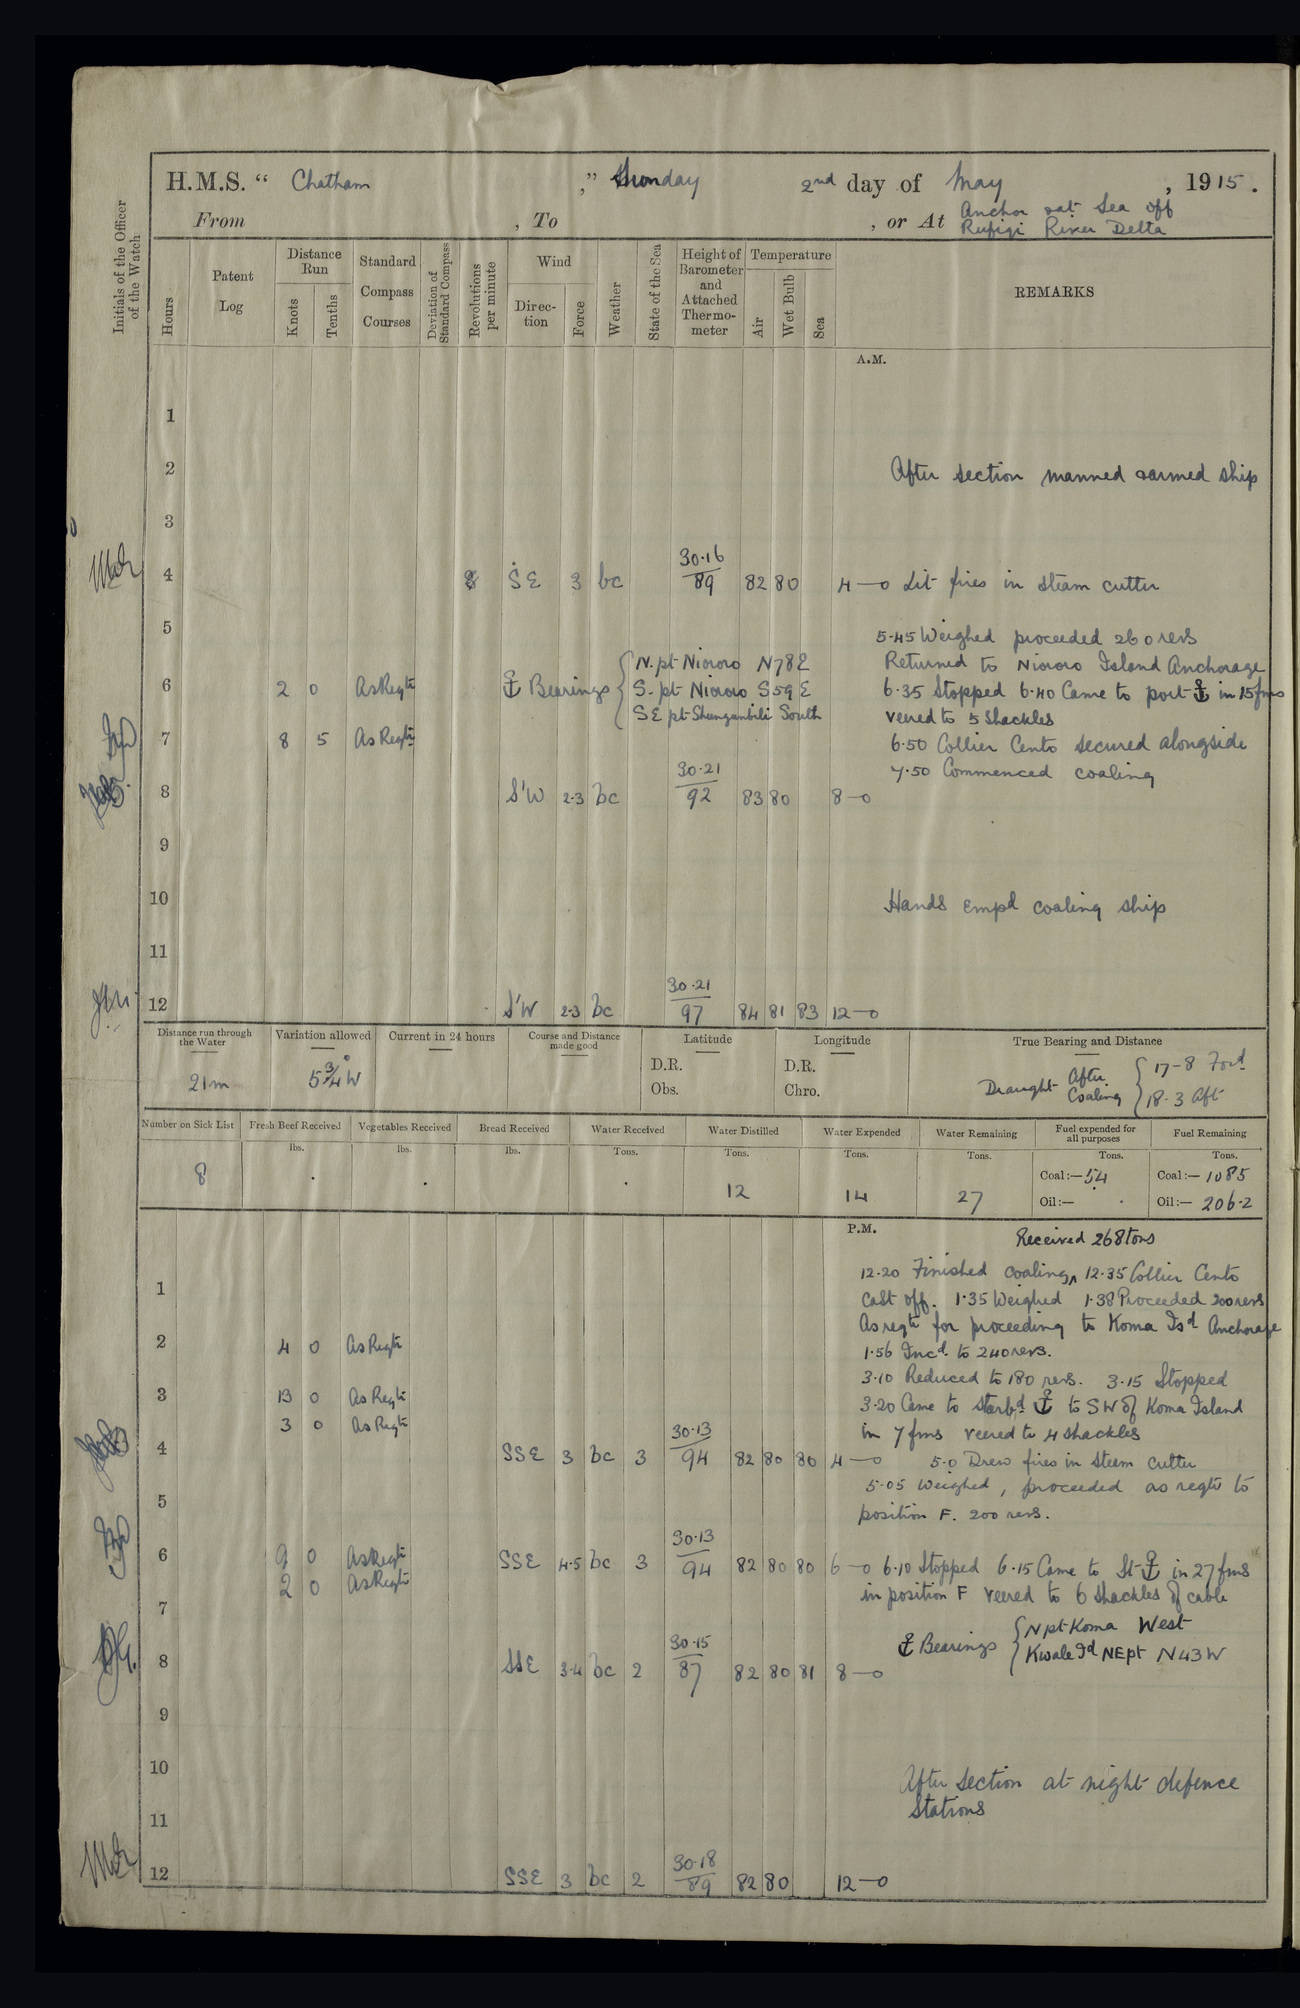 H.M.S. " Chatham ," Sunday 2nd day of May , 1915.
From , To , or At Anchor & at Sea off
Rufigi River Delta
Initials of the Officer of the Watch
Hours
Patent Log
Distance Run
Knots
Tenths
Standard Compass Courses
Deviation of Standard Compass
Revolutions per minute
Wind
Direc-tion
Force
Weather
State of the Sea
Height of Barometer and Attached Thermo-meter
Temperature
Air
Wet Bulb
Sea
REMARKS
A.M.
1
2 After section manned & armed ship
3
30.16
4 SE 3 bc 89 82 80 4—0 Lit fires in steam cutter
5 5.45 Weighed proceeded 260 revs
N. pt Niororo N78E Returned to Niororo Island Anchorage
6 2 0 As Reqte ⚓ Bearings S. pt Niororo S59E 6.35 Stopped 6.40 Came to port ⚓ in 15 fms
SE pt Shungunbili South veered to 5 shackles
7 8 5 As Reqte 6.50 Collier Cento secured alongside
30.21 7.50 Commenced coaling
8 S'W 2-3 bc 92 83 80 8—0
9
10 Hands empd coaling ship
11
30.21
12 S'W 2-3 bc 97 84 81 83 12—0
Distance run through the Water
Variation allowed
Current in 24 hours
Course and Distance made good
Latitude
Longitude
True Bearing and Distance
21m 5¾° W
D.R. D.R.
Obs. Chro.
Draught After Coaling 17-8 Ford
18-3 Aft
Number on Sick List
Fresh Beef Received
Vegetables Received
Bread Received
Water Received
Water Distilled
Water Expended
Water Remaining
Fuel expended for all purposes
Fuel Remaining
lbs. lbs. lbs. Tons. Tons. Tons. Tons. Tons. Tons.
8 . . . 12 14 27 Coal:—54 Coal:—1085
Oil:— . Oil:— 206.2
P.M.
Received 268 tons
12.20 Finished coaling ^ 12.35 Collier Cento
1 cast off. 1.35 Weighed 1.38 Proceeded 200 revs
As reqte for proceeding to Koma Isd Anchorage
2 4 0 As Reqte 1.56 Incd to 240 revs.
3.10 Reduced to 180 revs. 3.15 Stopped
3 13 0 As Reqte 3.20 Came to starbd ⚓ to SW of Koma Island
3 0 As Reqte 30.13 in 7 fms veered to 4 shackles
4 SSE 3 bc 3 94 82 80 80 4—0 5.0 Drew fires in steam cutter
5.05 Weighed, proceeded as reqte to
5 position F. 200 revs.
30.13
6 9 0 As Reqte SSE 4-5 bc 3 94 82 80 80 6—0 6.10 Stopped 6.15 Came to St ⚓ in 27 fms
2 0 As Reqte in position F veered to 6 shackles of cable
7
30.15 ⚓ Bearings N pt Koma West
8 SSE 3-4 bc 2 87 82 80 81 8—0 Kwale Id NE pt N43W
9
10 After section at night defence
11 Stations
30.18
12 SSE 3 bc 2 89 82 80 12—0